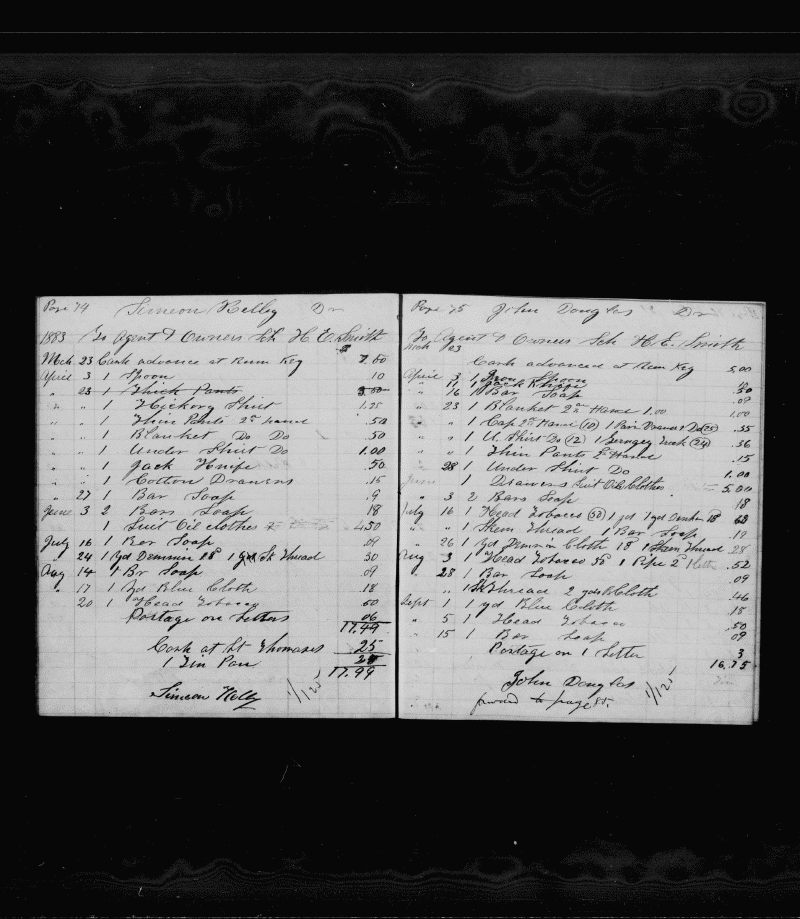 Page 74 Simeon Kelley Dr
1883 To Agent & Owners Sch H. E. Smith
Mch 23 Cash advance at Rum Key 7.00
April 3 1 Spoon 10
" 23 1 Thick Pants
" " 1 Hickory Shirt 1.25
" " 1 Thin Pants 2nd hand .50
" " 1 Blanket Do Do .50
" " 1 Under Shirt Do 1.00
" " 1 Jack Knife .50
" " 1 Cotton Drawers .15
" 27 1 Bar Soap .9
June 3 2 Bars Soap 18
1 Suit Oil clothes 4.50
July 16 1 Bar Soap .09
" 24 1 yd Demmin 18 Sk Thread 30
Aug 14 1 Br Soap .09
" 17 1 yd Blue Cloth .18
20 1 Head Tobacco 50
Postage on Letters 06
17.49
Cash at St Thomases 25
1 Tin Pan 25
17.99
Simeon Kelly 1/125
Page 75 John Douglas Dr
To Agent & Owners Sch H. E. Smith
Mch 23
Cash advanced at Rum Key 5.00
April 3 1 Iron Spoon
" 11 1 Jack Knife 50
" 16 1 Bar Soap .09
" 23 1 Blanket 2nd Hand 1.00 1.00
" " 1 Cap 2nd Hand (10) 1 Pair Drawers Do (25) .35
" " 1 U. Shirt Do (12) (24) .36
" " 1 Thin Pants 2 Hand .15
" 28 1 Under Shirt Do 1.00
June 1 Suit Oil Clothes 5.00
" 3 2 Bars Soap 18
July 16 1 Head Tobacco (50) 1 yd 18 68
" " 1 Skein Thread 1 Bar Soap .19
" 26 1 yd Demmin Cloth 18 1 Skein Thread 28
Aug 3 1 Head Tobacco 50 1 Pipe 2 .52
" 28 1 Bar Soap .09
" 1 Sk Thread 2 yds Cloth .46
Sept 1 1 yd Blue Cloth .18
" 5 1 Head Tobacco .50
" 15 1 Bar Soap 09
Postage on 1 Letter 3
16.75
John Douglas 1/125
forward to page 85.